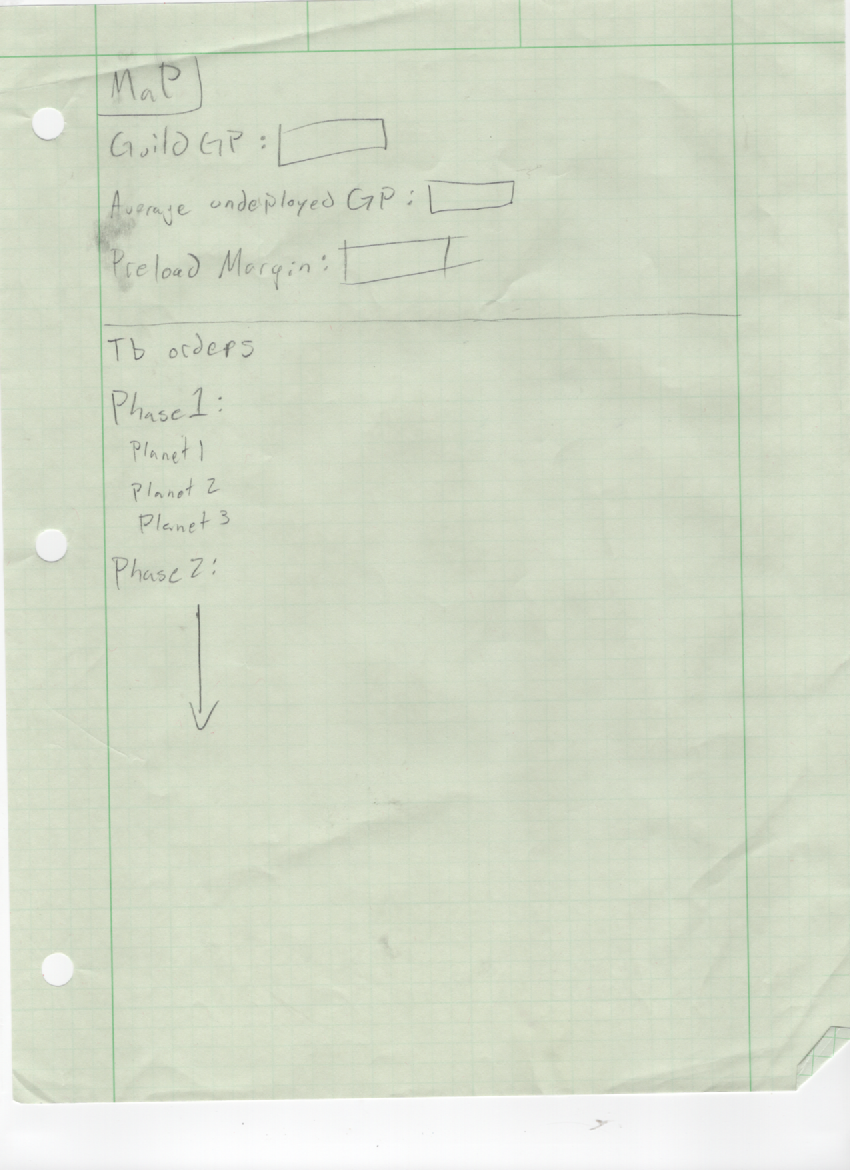 MaP
Guild GP:
Average undeployed GP:
Preload Margin:
Tb orders
Phase 1:
Planet 1
Planet 2
Planet 3
Phase 2: